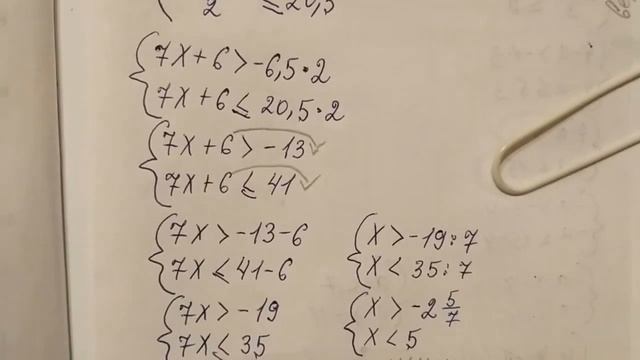 2 ≤ 20,5
7x+6 > -6,5·2
7x+6 ≤ 20,5·2
7x+6 > -13
7x+6 ≤ 41
7x > -13-6
7x ≤ 41-6
7x > -19
7x ≤ 35
x > -19:7
x < 35:7
x > -2 5/7
x < 5